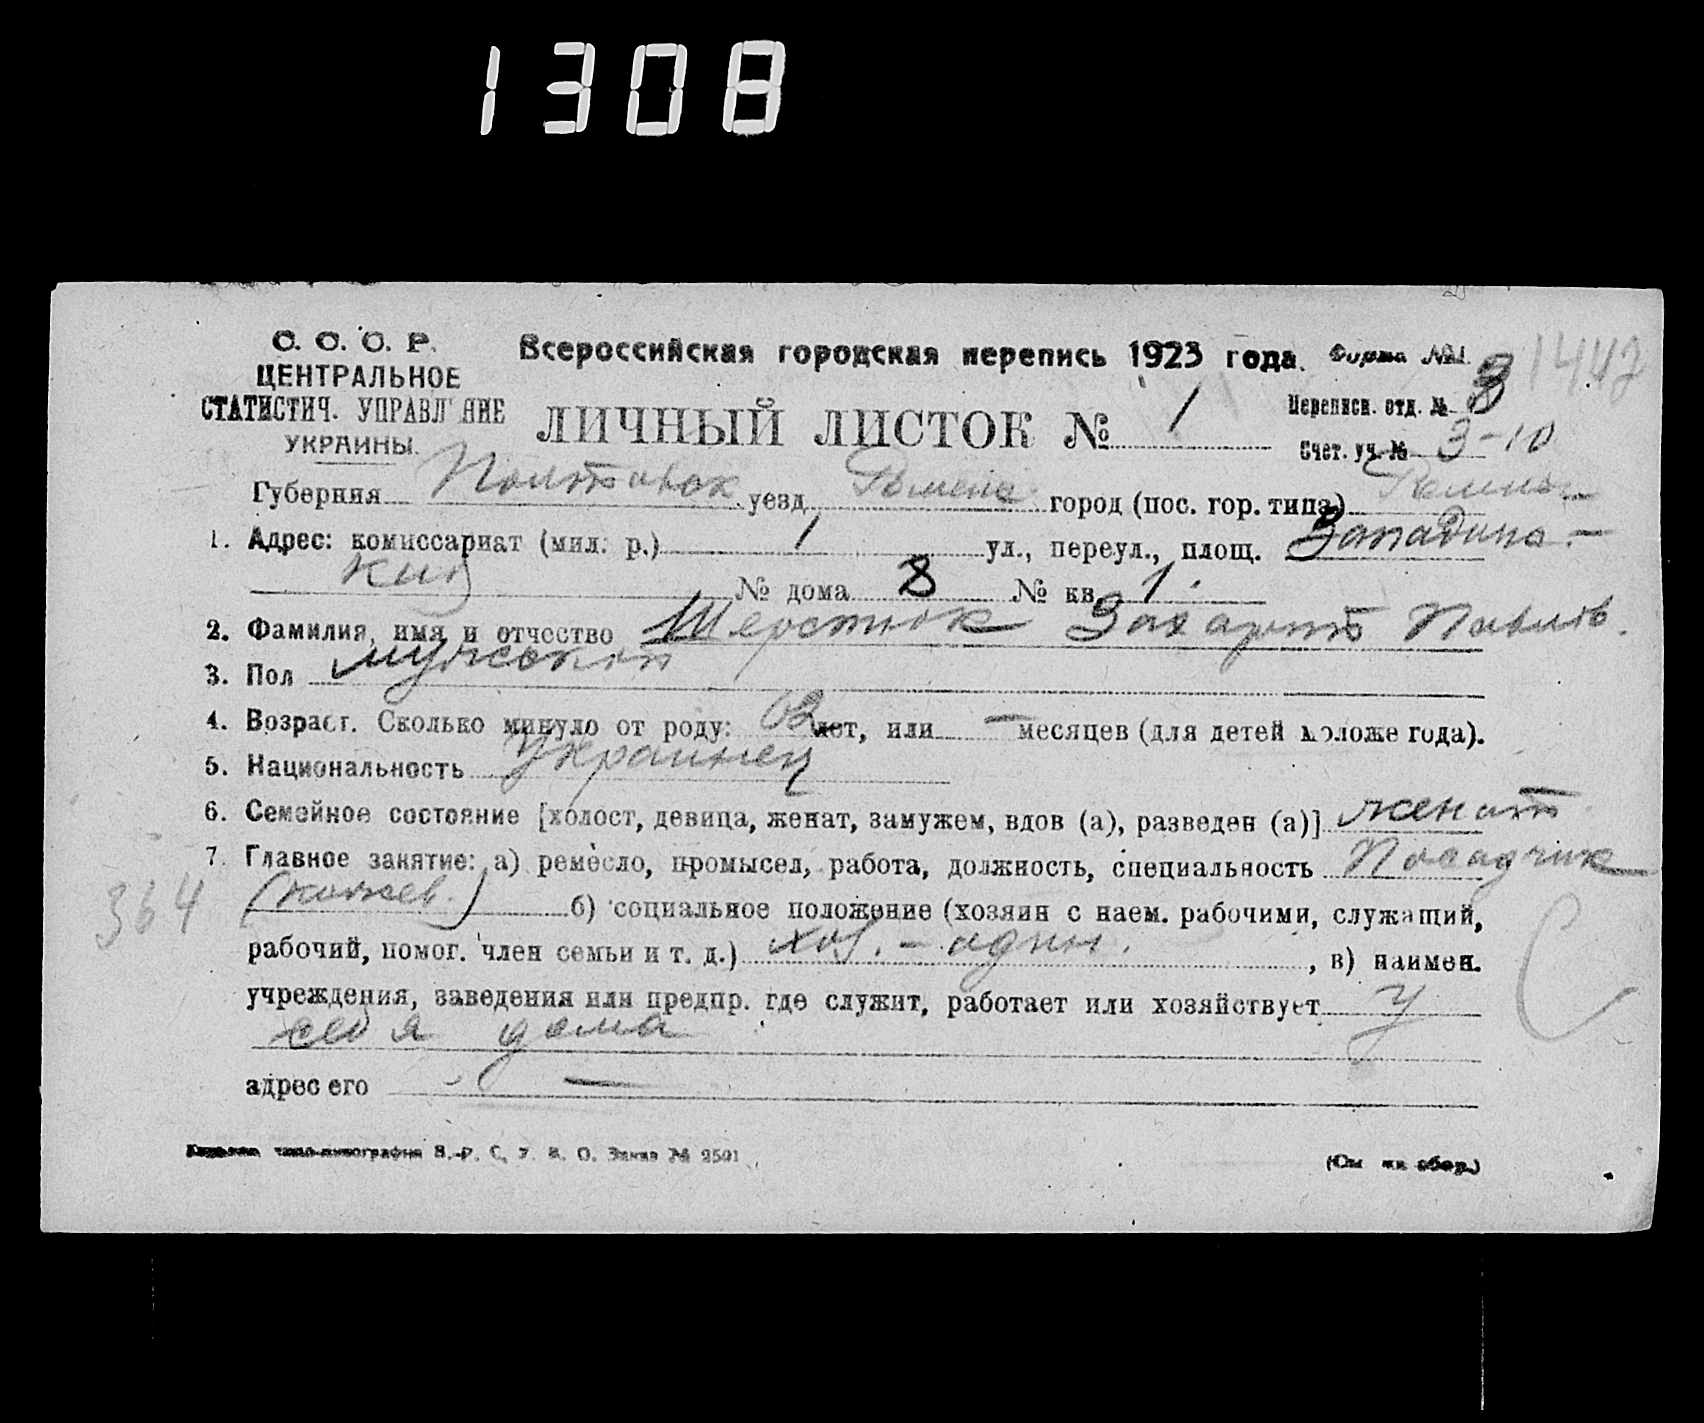 1308
С. С. С. Р. Всероссийская городская перепись 1923 года. Форма №1.
ЦЕНТРАЛЬНОЕ
СТАТИСТИЧ. УПРАВЛ НИЕ
УКРАИНЫ.
ЛИЧНЫЙ ЛИСТОК № 1 Переписн. отд. № 3
Счет. уч. № 3-10
Губерния Полтавск уезд Ромена город (пос. гор. типа) Ромны
1. Адрес: комиссариат (мил. р.) 1 ул., переул., площ.
№ дома 8 № кв. 1.
2. Фамилия, имя и отчество Шерстюк Захарий Павлов.
3. Пол мужской
4. Возраст. Сколько минуло от роду: 63 лет, или — месяцев (для детей моложе года).
5. Национальность Украинец
6. Семейное состояние [холост, девица, женат, замужем, вдов (а), разведен (а)] женат
7. Главное занятие: а) ремесло, промысел, работа, должность, специальность Посадчик
364 (кожев.) б) социальное положение (хозяин с наем. рабочими, служащий,
рабочий, помог. член семьи и т. д.) хоз. - один. , в) наимен.
учреждения, заведения или предпр. где служит, работает или хозяйствует у
себя дома
адрес его —
Заказ № 2501
(См на обор.)